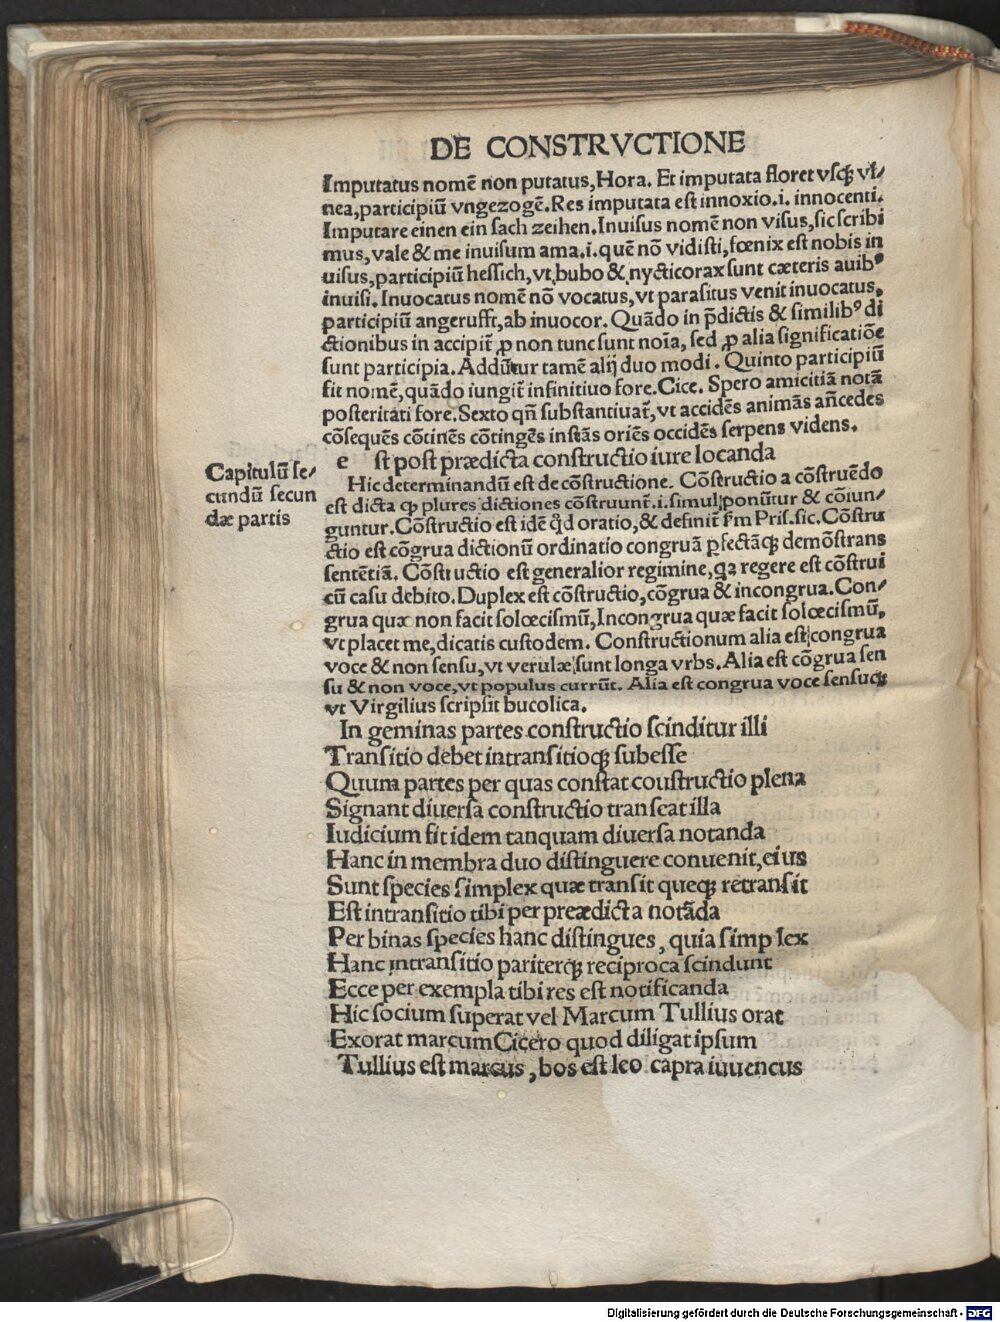 DE CONSTRVCTIONE
Imputatus nomē non putatus,Hora. Et imputata floret vſqꝫ vi⸗
nea,participiū vngezogē.Res imputata eſt innoxio.i. innocenti.
Imputare einen ein ſach zeihen.Inuiſus nomē non viſus,ſic ſcribi
mus,vale & me inuiſum ama.i.quē nō vidiſti,fœnix eſt nobis in
uiſus,participiū heſſich,vt bubo & nycticorax ſunt cæteris auibꝰ
inuiſi.Inuocatus nomē nō vocatus,vt paraſitus venit inuocatus,
participiū angerufft,ab inuocor. Quādo in p̄dictis & ſimilibꝰ di
ctionibus in accipit̄ ꝓ non tunc ſunt noīa, ſed ꝓ alia ſignificatiōe
ſunt participia.Addūtur tamē alij duo modi. Quinto participiū
fit nomē,quādo iungit̄ infinitiuo fore.Cice. Spero amicitiā notā
poſteritati fore.Sexto qn̄ ſubſtantiuat̄,vt accidēs animās an̄cedes
cōſequēs cōtinēs cōtingēs inſtās oriēs occidēs ſerpens videns.
e ſt poſt prædicta conſtructio iure locanda
Capitulū ſe⸗
cundū ſecun
dæ partis
Hic determinandū eſt de cōſtructione. Cōſtructio a cōſtruēdo
eſt dicta ꝙ plures dictiones cōſtruunt̄.i.ſimul ponūtur & cōiun⸗
guntur.Cōſtructio eſt idē qd̄ oratio,& definit̄ ſm̄ Priſ.ſic.Cōſtru
ctio eſt cōgrua dictionū ordinatio congruā ꝑfectāqꝫ demōſtrans
ſentētiā. Cōſtructio eſt generalior regimine,qa regere eſt cōſtrui
cū caſu debito.Duplex eſt cōſtructio,cōgrua & incongrua.Con⸗
grua quæ non facit ſolœciſmū,Incongrua quæ facit ſolœciſmū,
vt placet me,dicatis cuſtodem. Conſtructionum alia eſt congrua
voce & non ſenſu,vt verulæ ſunt longa vrbs. Alia eſt cōgrua ſen
ſu & non voce,vt populus currūt. Alia eſt congrua voce ſenſuqꝫ
vt Virgilius ſcripſit bucolica.
In geminas partes conſtructio ſcinditur illi
Tranſitio debet intranſitioqꝫ ſubeſſe
Quum partes per quas conſtat couſtructio plena
Signant diuerſa conſtructio tranſeat illa
Iudicium fit idem tanquam diuerſa notanda
Hanc in membra duo diſtinguere conuenit,eius
Sunt ſpecies ſimplex quæ tranſit queqꝫ retranſit
Eſt intranſitio tibi per preædicta notāda
Per binas ſpecies hanc diſtingues, quia ſimplex
Hanc intranſitio pariterqꝫ reciproca ſcindunt
Ecce per exempla tibi res eſt notificanda
Hic ſocium ſuperat vel Marcum Tullius orat
Exorat marcum Cicero quod diligat ipſum
Tullius eſt marcus, bos eſt leo capra iuuencus
Digitalisierung gefördert durch die Deutsche Forschungsgemeinschaft - DFG